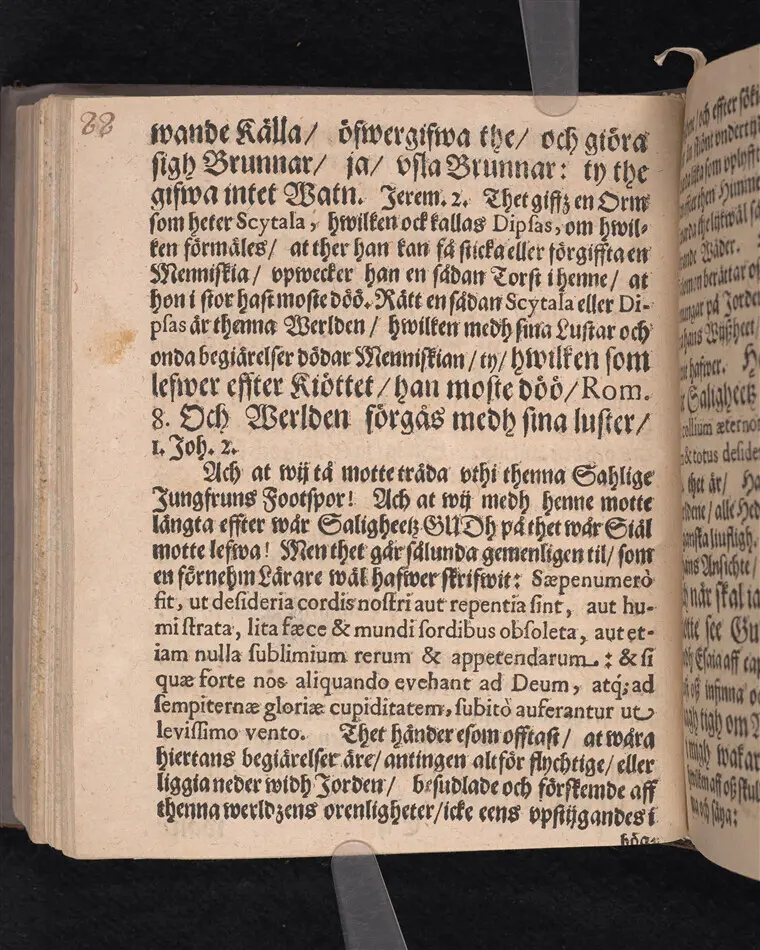 88
wande Källa/ öfwergifwa the/ och giöra
sigh Brunnar/ ja/ vsla Brunnar: ty the
gifwa intet Watn. Jerem. 2. Thet giffz en Orm
som heter Scytala, hwilken ock kallas Dipsas, om hwil-
ken förmäles/ at ther han kan få sticka eller förgiffta en
Menniskia/ vpwecker han en sådan Torst i henne/ at
hon i stor hast moste döö. Rätt en sådan Scytala eller Di-
psas är thenna Werlden/ hwilken medh sina Lustar och
onda begiärelser dödar Menniskian/ ty/ hwilken som
lefwer effter Kiöttet/ han moste döö/ Rom.
8. Och Werlden förgås medh sina luster/
1. Joh. 2.
Ach at wij tå motte träda vthi thenna Sahlige
Jungfruns Footspor! Ach at wij medh henne motte
längta effter wår Saligheetz GUDh på thet wår Siäl
motte lefwa! Men thet går sålunda gemenligen til/ som
en förnehm Lärare wäl hafwer skrifwit: Sæpenumerò
fit, ut desideria cordis nostri aut repentia sint, aut hu-
mi strata, lita fæce & mundi sordibus obsoleta, aut et-
iam nulla sublimium rerum & appetendarum.: & si
quæ forte nos aliquando evehant ad Deum, atq; ad
sempiternæ gloriæ cupiditatem, subitò auferantur ut
levissimo vento. Thet händer esom offtast/ at wåra
hiertans begiärelser äre/ antingen alt för flychtige/ eller
liggia neder widh Jorden/ besudlade och förskemde aff
thenna werldzens orenligheter/ icke eens vpstijgandes i
hög-